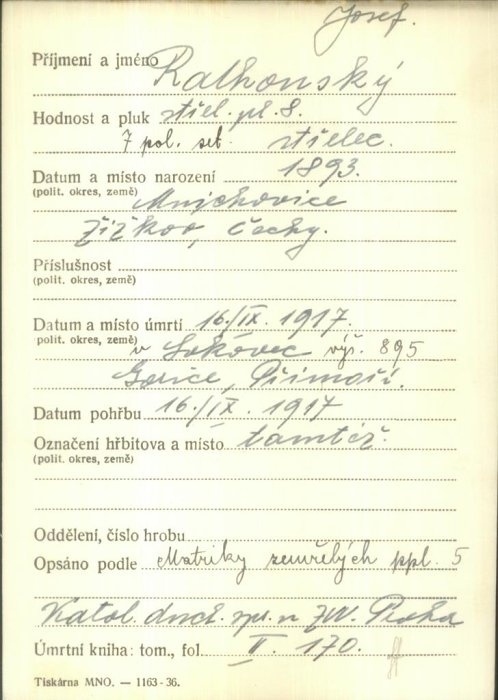 Josef.
Příjmení a jméno Rathouský
Hodnost a pluk střel. pl. 8.
7 pol. set. střelec.
Datum a místo narození 1893.
(polit. okres, země) Mnichovice
Žižkov, Čechy.
Příslušnost
(polit. okres, země)
Datum a místo úmrtí 16./IX. 1917.
(polit. okres, země) v Sokovec výš. 895
Gorice, Přímoří.
Datum pohřbu 16./IX. 1917
Označení hřbitova a místo tamtéž.
(polit. okres, země)
Oddělení, číslo hrobu
Opsáno podle Matriky zemřelých ppl. 5
Katol. duch. spr. n ZVV. Praha
Úmrtní kniha: tom., fol. II. 170.
Tiskárna MNO. — 1163-36.